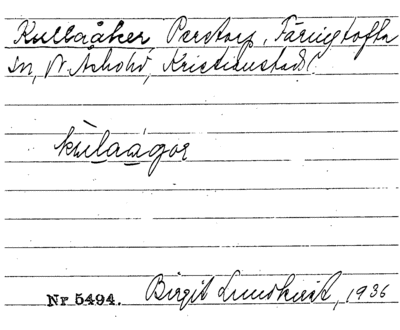 Kullaåker, Perstorp, Färingtofta
sn, N. Åsbohd, Kristianstads l.
kùlaágor
Nr 5494. Birgit Lundkvist, 1936